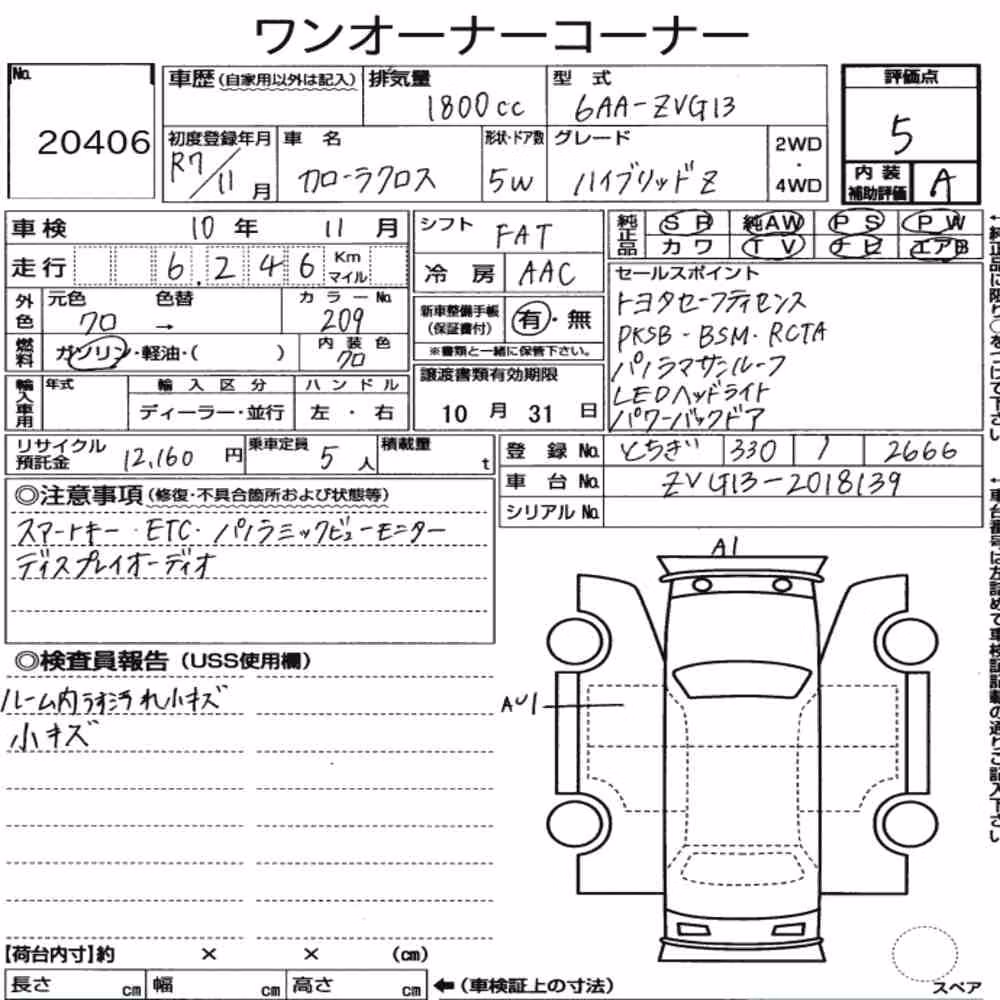 ワンオーナーコーナー
No. 20406
車歴(自家用以外は記入)
排気量 1800cc
型式 6AA-ZVG13
評価点 5
内装補助評価 A
初度登録年月 R7/11月
車名 カローラクロス
形状・ドア数 5W
グレード ハイブリッドZ
2WD・4WD
車検 10年 11月
走行 6,246 Km マイル
シフト FAT
冷房 AAC
純正品 SR 純AW PS PW
カワ TV ナビ エアB
外色 元色 クロ → 色替
カラーNo. 209
燃料 ガソリン・軽油・( )
内装色 クロ
新車整備手帳(保証書付) 有・無
※書類と一緒に保管下さい。
セールスポイント
トヨタセーフティセンス
PKSB・BSM・RCTA
パノラマサンルーフ
LEDヘッドライト
パワーバックドア
輸入車用 年式 輸入区分 ハンドル
ディーラー・並行 左・右
譲渡書類有効期限
10月31日
リサイクル預託金 12,160円
乗車定員 5人
積載量 t
登録No. とちぎ 330 1 2666
車台No. ZVG13-2018139
シリアルNo.
◎注意事項(修復・不具合箇所および状態等)
スマートキー・ETC・パノラミックビューモニター
ディスプレイオーディオ
◎検査員報告(USS使用欄)
ルーム内うす汚れ小キズ
小キズ
A1
AU1
【荷台内寸】約 × × (cm)
長さ cm 幅 cm 高さ cm ←(車検証上の寸法)
スペア
←純正品に限り○をつけて下さい
←車台番号は左詰めで車検証記載の通りご記入下さい